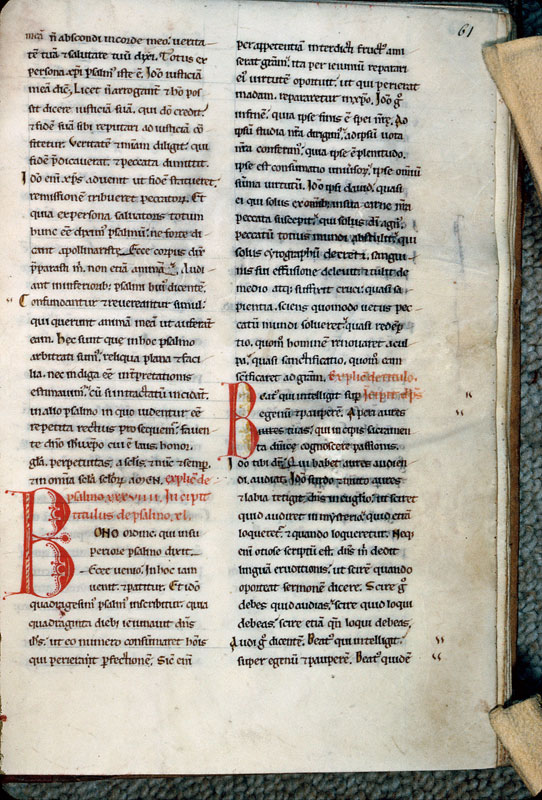 61
meā n̄ abscondi in corde meo. uerita
tē tuā & salutare tuū dixi. Totus ex
persona xp̄i psalm' iste ē. Ido iusticiā
meā dic̄. Licet n̄ arrogant' & bōn pos
sit dicere iusticiā suā. qui dō credit.
& fidē suā sibi reputari ad iusticiā cō
fitetur. Veritatē & miam diligit. qui
fidē p̄dicauerat. & peccata dimittit.
Ido em̄ xp̄s aduenit ut fidē statueret.
remissionē tribueret peccatorū. Et
quia ex persona saluatoris totum
hunc eē diximꝰ psalmū. ne forte di
cant apollinaristę. Ecce corpus dn̄i
p̄parasti m̄. non etiā animā. Audi
ant in inferiorib; psalmi huiꝰ dicente.
Confundantur & reuereantur simul.
qui querunt animā meā ut auferāt
eam. Hec sunt que in hoc psalmo
arbitrati sumꝰ. reliqua plana & faci
lia. nec indiga eē interpretationis
estimauimꝰ. cū sint tractatū incidāt.
in alio psalmo in quo uidentur eē
repetita rectius prosequemꝰ. fauen
te dn̄o ih̄u xp̄o cui ē laus. honor.
gl̄a. perpetuitas. a sclis. & nunc & semꝑ.
& in omnia sclā sclōrꝝ. amen. explic̄ de
psalmo xxxviiii. Incipit
titulus de psalmo. xl.
Bono ordine. qui in su
periore psalmo dixit.
Ecce uenio. in hoc iam
uenit. & patitur. Et ido
quadragesimꝰ psalmꝰ inscribitur. quia
quadraginta dieb; ieiunauit dn̄s
ih̄s. ut eo numero consumaret hōis
qui perierat p̄fectionē. Sic em̄
per appetentiā interdicti fructꝰ ami
serat gratiā. ita per ieiuniū reparari
ei uirtutē oportuit. ut qui perierat
in adam. repararetur in xp̄o. Ido g°
in finē. quia ipse finis ē spei nr̄ę. Ad
ipsū studia nr̄a dirigimꝰ. ad ipsū uota
nr̄a conferimꝰ. quia ipse ē plenitudo.
ipse est consūmatio uniuersorꝝ. ipse omniū
sūma uirtutū. Ido ipsi dauid. quasi
ei qui solus ex omnib; ista carne nr̄a
peccata suscepit. qui solus dī agnꝰ.
peccatū totius mundi abstulit. qui
solus cyrographū decreti. sangui
nis sui effusione deleuit & tulit de
medio. atq; suffixit cruci. quasi sa
pientia. sciens quomodo uetus pec
catū mundi solueret. quasi redēp
tio. quom̄ hominē renouaret a cul
pa. quasi sanctificatio. quom̄ cum
sctificaret ad gratiam. Explic̄ de titulo.
Beatꝰ qui intelligit sup̄ Incipit dep̄s
egenū & pauperē. Aperi aures
aures tuas. qui incipis sacramen
ta dn̄icę cognoscere passionis.
Ido tibi dr̄. Qui habet aures audien
di. audiat. Ido surdo & muto aures
& labia tetigit dn̄s in euglio. ut sciret
quid audiret in mysterio. quid etiā
loqueretꝰ. & quando loqueretur. Neq;
em̄ otiose scriptū est. dn̄s m̄ dedit
linguā eruditionis. ut scirē quando
oporteat sermonē dicere. Scire g°
debes quid audias. scire quid loqui
debeas. scire etiā qn̄ loqui debeas.
Audi g° dicentē. Beatꝰ qui intelligit.
super egenū & pauperē. Beatꝰ quidē